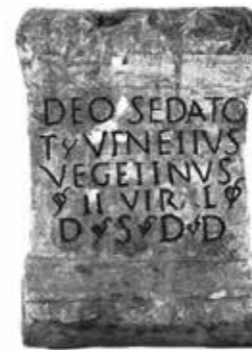 DEO SEDATO
T VENETIVS
VEGETINVS
II VIR L
D S D D